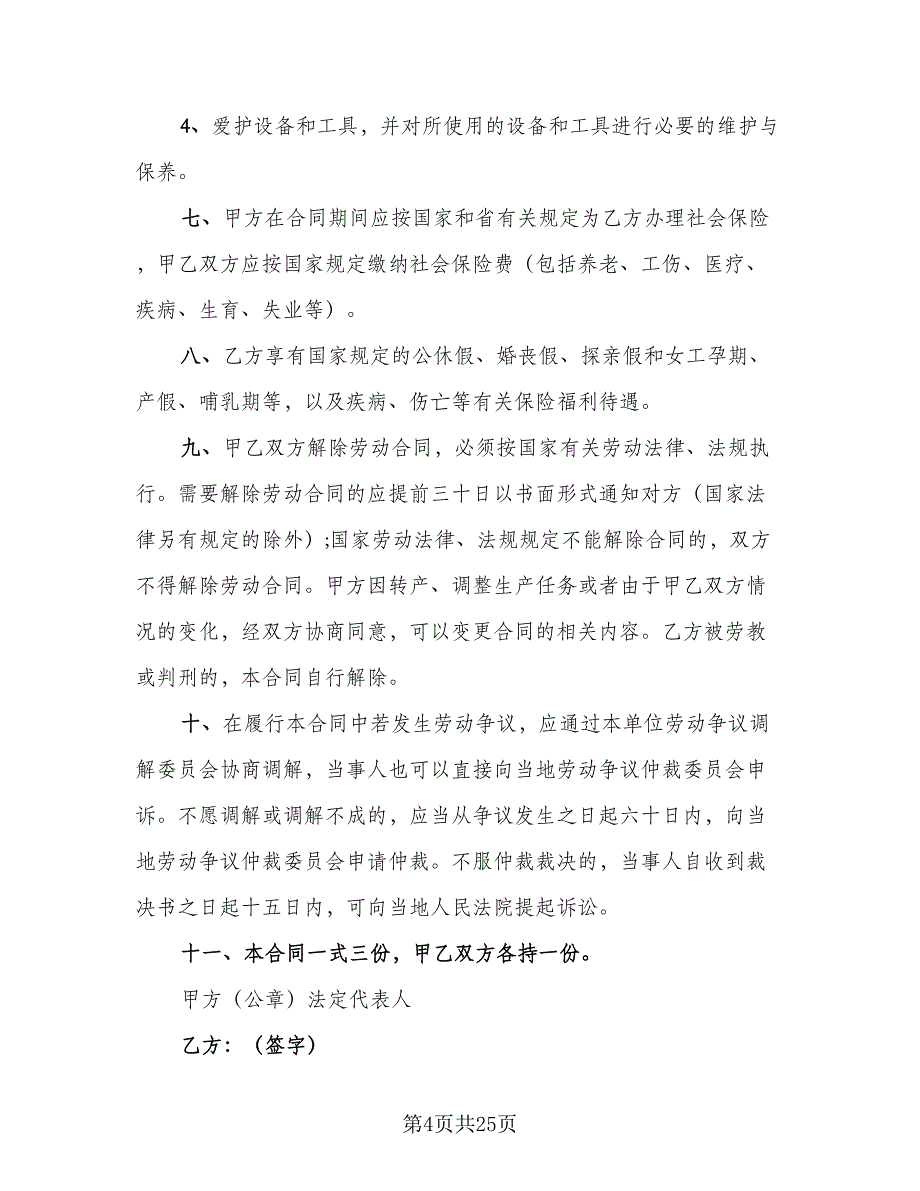 4、爱护设备和工具，并对所使用的设备和工具进行必要的维护与
保养。
七、甲方在合同期间应按国家和省有关规定为乙方办理社会保险
，甲乙双方应按国家规定缴纳社会保险费（包括养老、工伤、医疗、
疾病、生育、失业等）。
八、乙方享有国家规定的公休假、婚丧假、探亲假和女工孕期、
产假、哺乳期等，以及疾病、伤亡等有关保险福利待遇。
九、甲乙双方解除劳动合同，必须按国家有关劳动法律、法规执
行。需要解除劳动合同的应提前三十日以书面形式通知对方（国家法
律另有规定的除外）;国家劳动法律、法规规定不能解除合同的，双方
不得解除劳动合同。甲方因转产、调整生产任务或者由于甲乙双方情
况的变化，经双方协商同意，可以变更合同的相关内容。乙方被劳教
或判刑的，本合同自行解除。
十、在履行本合同中若发生劳动争议，应通过本单位劳动争议调
解委员会协商调解，当事人也可以直接向当地劳动争议仲裁委员会申
诉。不愿调解或调解不成的，应当从争议发生之日起六十日内，向当
地劳动争议仲裁委员会申请仲裁。不服仲裁裁决的，当事人自收到裁
决书之日起十五日内，可向当地人民法院提起诉讼。
十一、本合同一式三份，甲乙双方各持一份。
甲方（公章）法定代表人
乙方：（签字）
第4页共25页